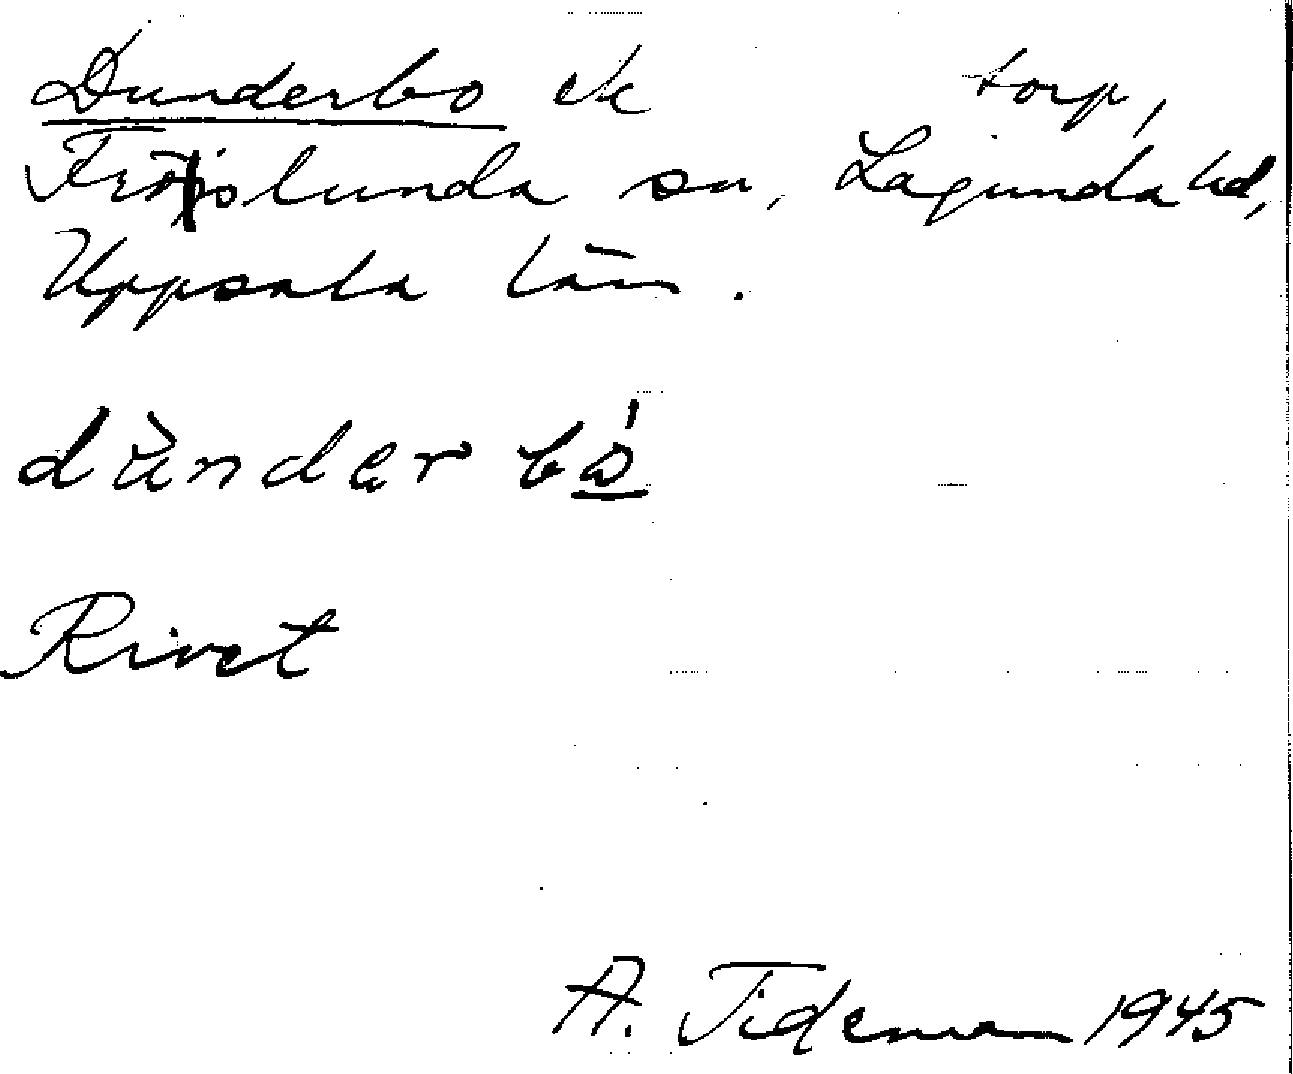 Dunderbo ek torp,
Fröslunda sn, Lagunda hd,
Uppsala län.
dùnderbó
Rivet
A. Tideman 1945